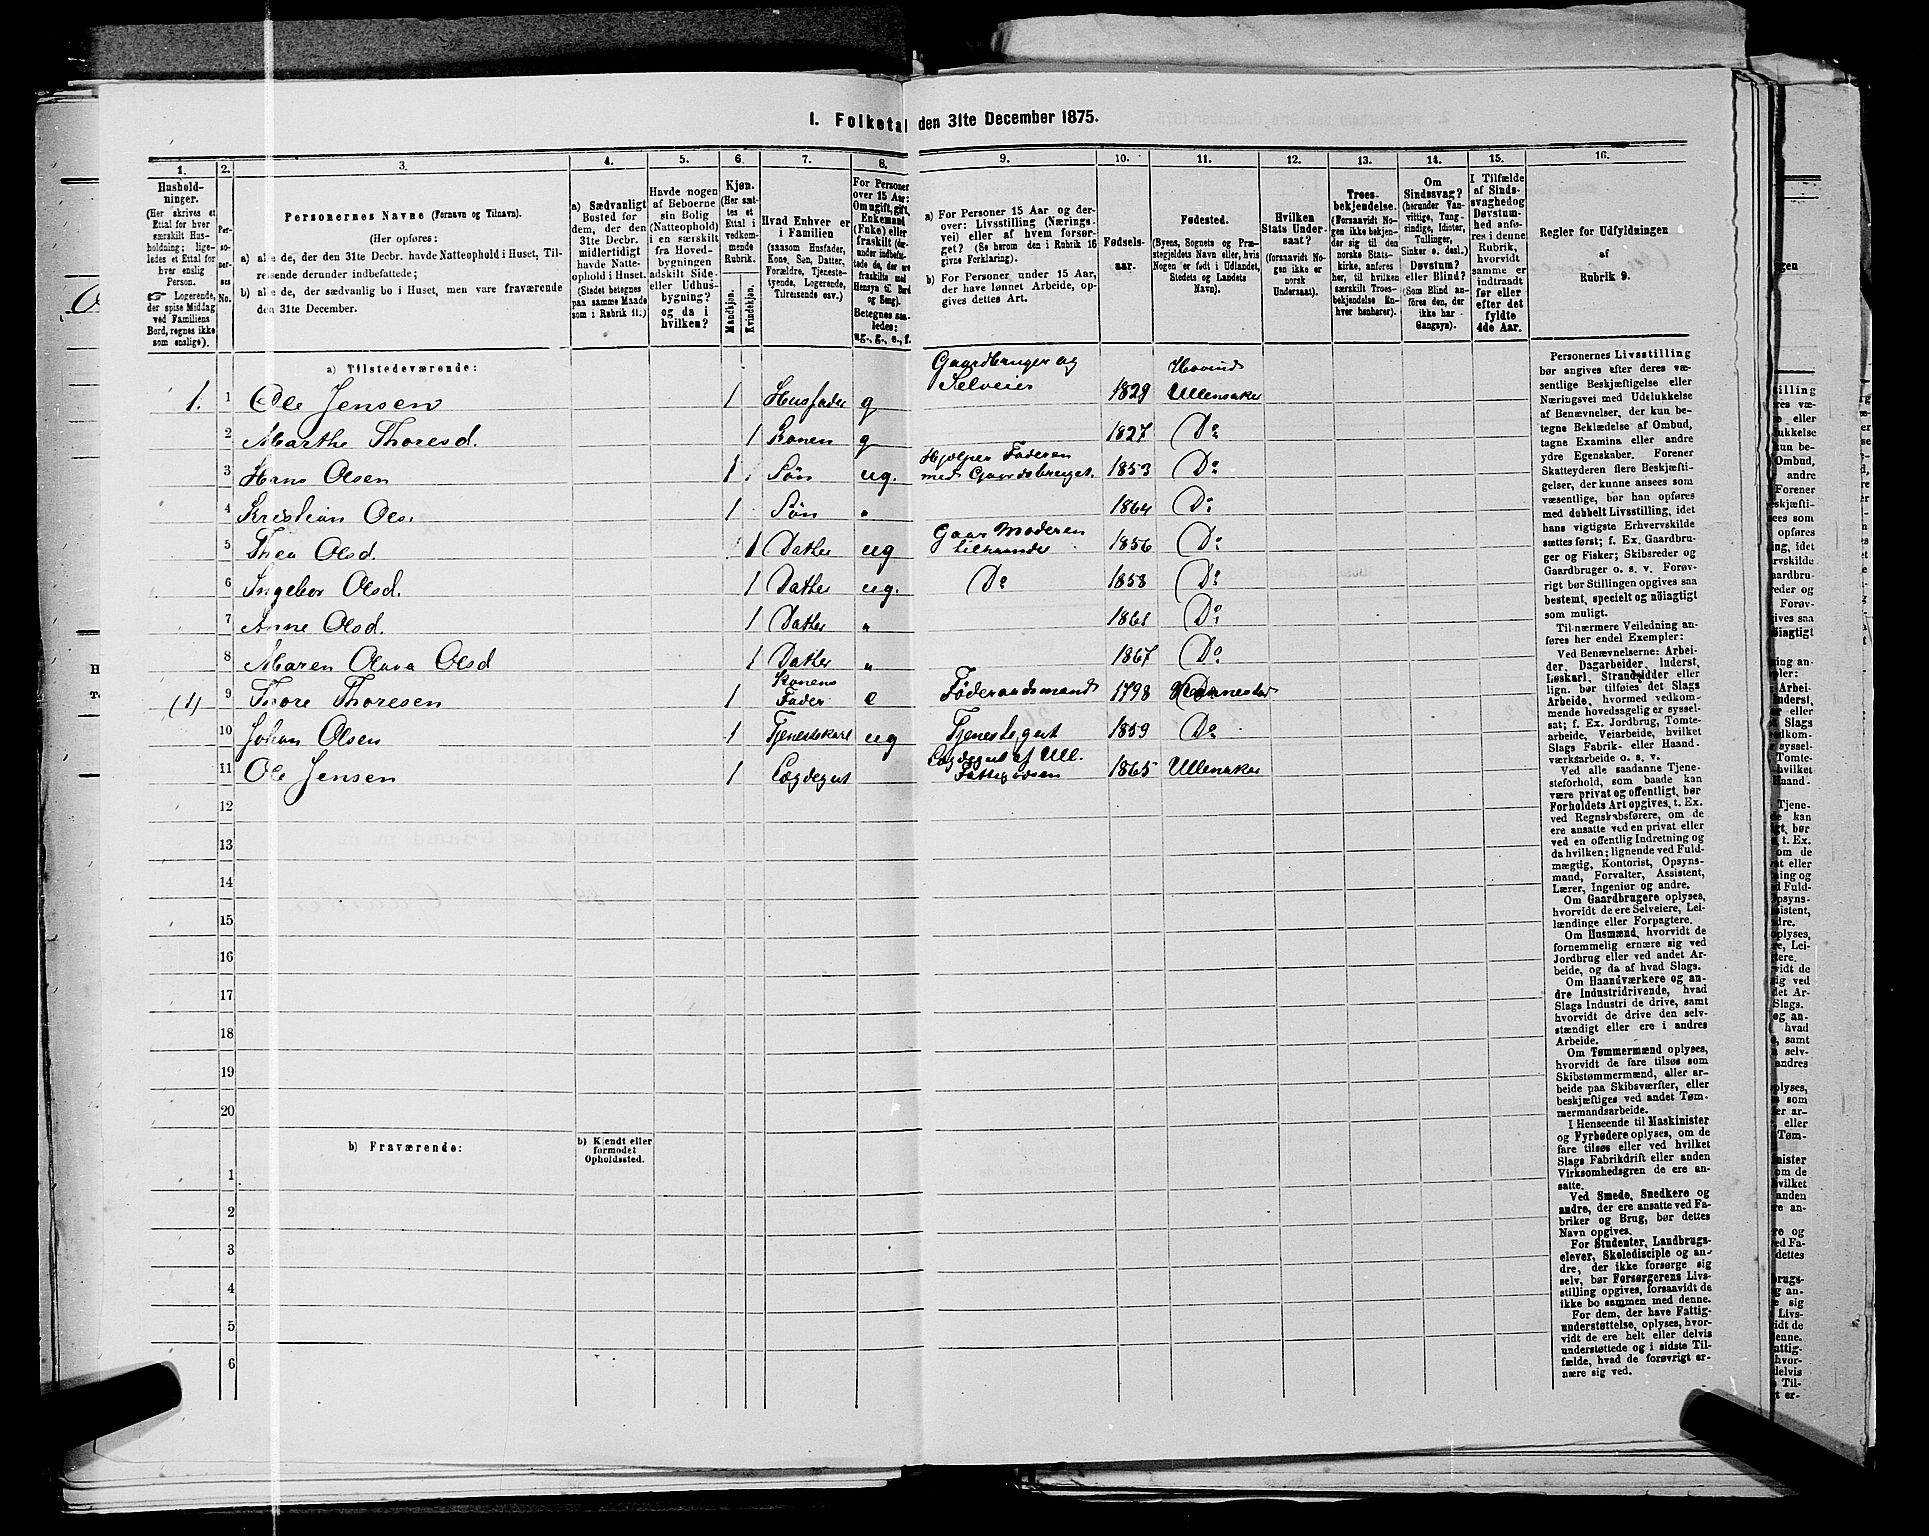 1. Folketal den 31te December 1875.
1. 2. 3. 4. 5. 6. 7. 8. 9. 10. 11. 12. 13. 14. 15. 16.
Hushold-
ninger.
(Her skrives et
Ettal for hver
særskilt Hus-
holdning; lige-
ledes et Ettal for
hver enslig
Person.
☞ Logerende,
der spise Middag
ved Familiens
Bord, regnes ikke
som enslige).
Per-
so-
ner-
nes
No.
Personernes Navne (Fornavn og Tilnavn).
(Her opføres:
a) alle de, der den 31te Decbr. havde Natteophold i Huset, Til-
reisende derunder indbefattede;
b) alle de, der sædvanlig bo i Huset, men vare fraværende
den 31te December.
a) Sædvanligt
Bosted for
dem, der den
31te Decbr.
midlertidigt
havde Natte-
ophold i Huset.
(Stedet betegnes
paa samme Maade
som i Rubrik 11.)
Havde nogen
af Beboerne
sin Bolig
(Natteophold)
i en særskilt
fra Hoved-
bygningen
adskilt Side-
eller Udhus-
bygning?
og da i
hvilken?
Kjøn.
(Her sæt-
tes et
Ettal i
vedkom-
mende
Rubrik.
Mandkjøn.
Kvindekjøn.
Hvad Enhver er
i Familien
(saasom Husfader,
Kone, Søn, Datter,
Forældre, Tjeneste-
tyende, Logerende,
Tilreisende osv.)
For Personer
over 15 Aar:
Om ugift, gift,
Enkemand
(Enke) eller
fraskilt (der-
under indbefat-
tede de, der ere
fraskilte med
Hensyn til Bord
og Seng).
Betegnes saa-
ledes:
ug., g., e., f.
a) For Personer 15 Aar og der-
over: Livsstilling (Nærings-
vei) eller af hvem forsør-
get? (Se herom den i Rubrik 16
givne Forklaring).
b) For Personer under 15 Aar,
der have lønnet Arbeide, op-
gives dettes Art.
Fødsels-
aar.
Fødested.
(Byens, Sognets og Præ-
stegjeldets Navn eller, hvis
Nogen er født i Udlandet,
Stedets og Landets
Navn).
Hvilken
Stats Under-
saat?
(forsaavidt No-
gen ikke er
norsk
Undersaat).
Troes-
bekjendelse.
(Forsaavidt No-
gen ikke bekjen-
der sig til den
norske Stats-
kirke, anføres
her, til hvilken
særskilt Troes-
bekjendelse En-
hver henhører).
Om
Sindssvag?
(herunder Van-
vittige, Tung-
sindige, Idioter,
Tullinger,
Sinker o. desl.)
Døvstum?
eller Blind?
(Som Blind an-
føres den, der
ikke har
Gangsyn).
I Tilfælde
af Sinds-
svaghed og
Døvstum-
hed anfø-
res i denne
Rubrik,
hvorvidt
samme er
indtraadt
før eller
efter det
fyldte
4de Aar.
Regler for Udfyldningen
af
Rubrik 9.
a) Tilstedeværende:
Gaardbruger og Hovind
1. 1 Ole Jensen 1 Husfader g Selveier 1829 Ullensaker
2 Marthe Thoresd. 1 Konen g 1827 Do
Hjælper Faderen
3 Hans Olsen 1 Søn ug. med Gaardsbruget. 1853 Do
4 Kristian Ols. 1 Søn " 1864 Do
Gaar Moderen
5 Thea Olsd. 1 Datter ug tilhaande 1856 Do
6 Ingebor Olsd. 1 Datter ug. Do 1858 Do
7 Anne Olsd. 1 Datter " 1861 Do
8 Maren Olava Olsd 1 Datter " 1867 Do
Konens
(1) 9 Thore Thoresen 1 Fader e Føderaadsmand 1798
10 Johan Olsen 1 Tjenestekarl ug Tjenestegut 1859 Do
Lægdegut af Ull.
11 Ole Jensen 1 Lægdegut Fattigvæsen 1865 Ullensaker
12
13
14
15
16
17
18
19
20
b) Fraværende:
b) Kjendt eller
formodet
Opholdssted.
1
2
3
4
5
6
Personernes Livsstilling
bør angives efter deres væ-
sentlige Beskjæftigelse eller
Næringsvei med Udelukkelse
af Benævnelser, der kun be-
tegne Beklædelse af Ombud,
tagne Examina eller andre
ydre Egenskaber. Forener
Skatteyderen flere Beskjæfti-
gelser, der kunne ansees som
væsentlige, bør han opføres
med dobbelt Livsstilling, idet
hans vigtigste Erhvervskilde
sættes først; f. Ex. Gaardbru-
ger og Fisker; Skibsreder og
Gaardbruger o. s. v. Forøv-
rigt bør Stillingen opgives saa
bestemt, specielt og nöiagtigt
som muligt.
Til nærmere Veiledning an-
føres her endel Exempler:
Ved Benævnelserne: Arbei-
der, Dagarbeider, Inderst,
Løskarl, Strandsidder eller
lign. bør tilføies det Slags
Arbeide, hvormed vedkom-
mende hovedsagelig er syssel-
sat; f. Ex. Jordbrug, Tomte-
arbeide, Veiarbeide, hvilket
Slags Fabrik- eller Haand-
værksarbeide o. s. v.
Ved alle saadanne Tjene-
steforhold, som baade kan
være privat og offentligt, bør
Forholdets Art opgives, t. Ex.
ved Regnskabsførere, om de
ere ansatte ved en privat eller
ved en offentlig Indretning og
da hvilken; lignende ved Fuld-
mægtig, Kontorist, Opsyns-
mand, Forvalter, Assistent,
Lærer, Ingeniør og andre.
Om Gaardbrugere oplyses,
hvorvidt de ere Selveiere, Lei-
lændinge eller Forpagtere.
Om Husmænd, hvorvidt de
fornemmelig ernære sig ved
Jordbrug eller ved andet Ar-
beide, og da af hvad Slags.
Om Haandværkere og an-
dre Industridrivende, hvad
Slags Industri de drive, samt
hvorvidt de drive den selv-
stændigt eller ere i andres
Arbeide.
Om Tømmermænd oplyses,
hvorvidt de fare tilsøs som
Skibstømmermænd, eller ar-
beide paa Skibsværfter, eller
beskjæftiges ved andet Tøm-
mermandsarbeide.
I Henseende til Maskinister
og Fyrbødere oplyses, om de
fare tilsøs eller ved hvilket
Slags Fabrikdrift eller anden
Virksomhedsgren de ere an-
satte.
Ved Smede, Snedkere og
andre, der ere ansatte ved Fa-
briker og Brug, bør dettes
Navn opgives.
For Studenter, Landbrugs-
elever, Skoledisciple og an-
dre, der ikke forsørge sig
selv, bør Forsørgerens Livs-
stilling opgives, forsaavidt de
ikke bo sammen med denne.
For dem, der have Fattig-
understøttelse, oplyses, hvor-
vidt de ere helt eller delvis
understøttede og i sidste Til-
fælde, hvad de forøvrigt er-
nære sig ved.